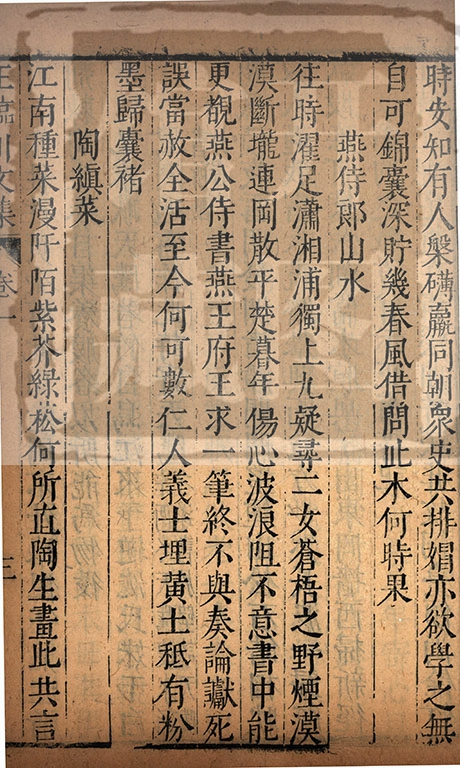 時安知有人槃礴臝同朝衆史共排媢亦欲學之無
自可錦囊深貯幾春風借問此木何時果
燕侍郎山水
往時濯足瀟湘浦獨上九疑尋二女蒼梧之野煙漠
漠斷壠連岡散平楚暮年傷心波浪阻不意書中能
更覩燕公侍書燕王府王求一筆終不與奏論讞死
誤當赦全活至今何可數仁人義士埋黃土秖有粉
墨歸囊褚
陶縝菜
江南種菜漫阡陌紫芥綠菘何所直陶生畫此共言
王臨川文集 卷一 三